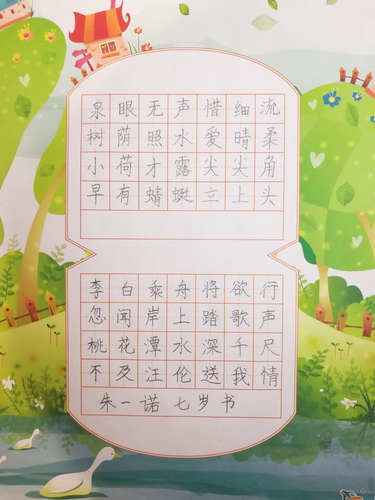 泉眼无声惜细流
树荫照水爱晴柔
小荷才露尖尖角
早有蜻蜓立上头
李白乘舟将欲行
忽闻岸上踏歌声
桃花潭水深千尺
不及汪伦送我情
朱一诺七岁书